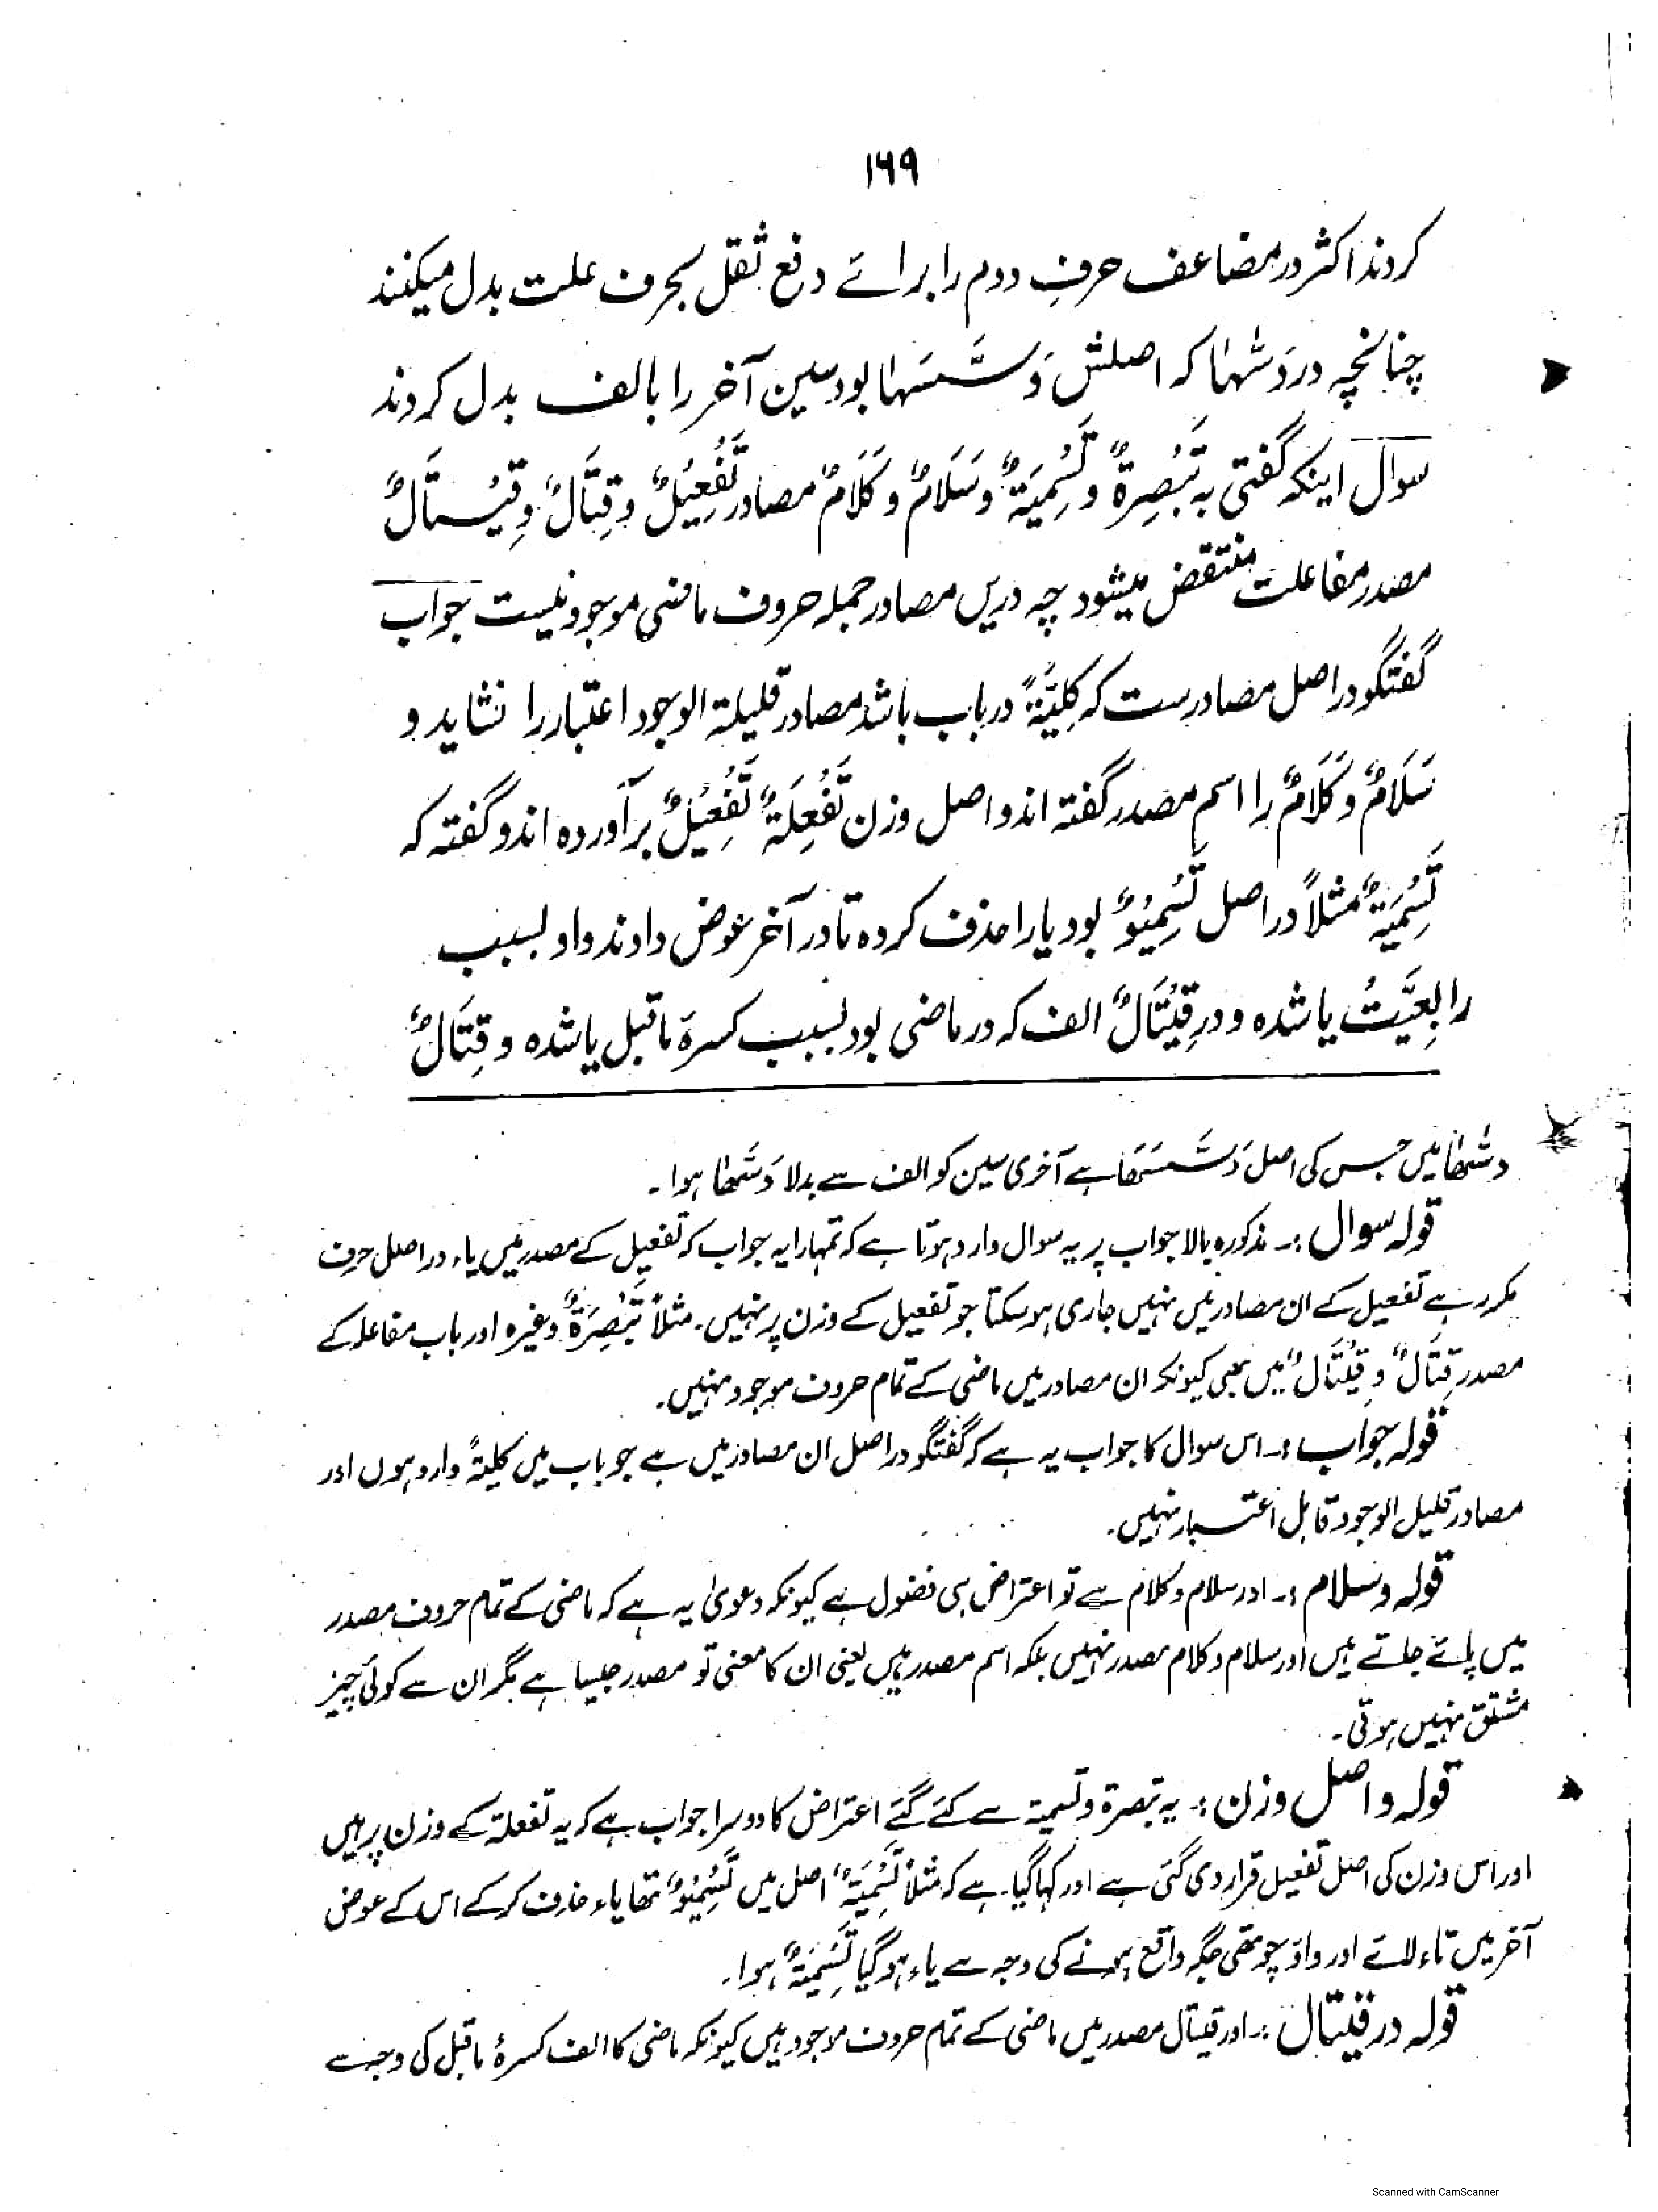 ۱۶۹
کردند اکثر در مضاعف حرفِ دوم را برائے دفع ثقل بحرف علت بدل میکنند
چنانچہ در دَسّٰہَا کہ اصلش دَسَّسَہَا بود سین آخر را بالف بدل کردند
سوال اینکہ گفتی بہ تَبْصِرَةٌ و تَسْمِیَةٌ و سَلَامٌ و کَلَامٌ مصادر تَفْعِیْلٌ و قِتَالٌ و قِیْتَالٌ
مصدر مفاعلت منتقض میشود چہ دریں مصادر جملہ حروف ماضی موجود نیست جواب
گفتگو در اصل مصادرست کہ کلِیَّةً در باب باشد مصادر قلیلۃ الوجود اعتبار را نشاید و
سَلَامٌ و کَلَامٌ را اسم مصدر گفتہ اند و اصل وزن تَفْعِلَةٌ تَفْعِیْلٌ برآوردہ اند و گفتہ کہ
تَسْمِیَةٌ مثلاً در اصل تَسْمِیْوٌ بود یا را حذف کردہ تا در آخر عوض دادند واو بسبب
رابِعِیَّتُ یا شدہ و در قِیْتَالٌ الف کہ در ماضی بود بسبب کسرۂ ماقبل یا شدہ و قِتَالٌ
دسّٰھَا میں جس کی اصل دَسَّسَھَا ہے آخری سین کو الف سے بدلا دَسّٰھَا ہوا ۔
قولہ سوال :۔ مذکورہ بالا جواب پر یہ سوال وارد ہوتا ہے کہ تمہارا یہ جواب کہ تفعیل کے مصدر میں یاء دراصل حرفِ
مکرر ہے تفعیل کے ان مصادر میں نہیں جاری ہو سکتا جو تفعیل کے وزن پر نہیں۔ مثلاً تَبْصِرَةٌ وغیرہ اور باب مفاعلہ کے
مصدر قِتَالٌ و قِیْتَالٌ میں بھی کیونکہ ان مصادر میں ماضی کے تمام حروف موجود نہیں۔
قولہ جواب :۔ اس سوال کا جواب یہ ہے کہ گفتگو دراصل ان مصادر میں ہے جو باب میں کلیۃً وارد ہوں اور
مصادر قلیل الوجود قابل اعتبار نہیں۔
قولہ وسلام :۔ اور سلام و کلام سے تو اعتراض ہی فضول ہے کیونکہ دعویٰ یہ ہے کہ ماضی کے تمام حروف مصدر
میں پائے جاتے ہیں اور سلام و کلام مصدر نہیں بلکہ اسم مصدر ہیں یعنی ان کا معنی تو مصدر جیسا ہے مگر ان سے کوئی چیز
مشتق نہیں ہوتی۔
قولہ و اصل وزن :۔ یہ تبصرۃ و تسمیۃ سے کئے گئے اعتراض کا دوسرا جواب ہے کہ یہ تفعلۃ کے وزن پر ہیں
اور اس وزن کی اصل تفعیل قرار دی گئی ہے اور کہا گیا ہے کہ مثلاً تَسْمِیَةٌ اصل میں تَسْمِیْوٌ تھا یاء حذف کر کے اس کے عوض
آخر میں تاء لائے اور واؤ چوتھی جگہ واقع ہونے کی وجہ سے یاء ہو گیا تَسْمِیَةٌ ہوا۔
قولہ در قیتال :۔ اور قیتال مصدر میں ماضی کے تمام حروف موجود ہیں کیونکہ ماضی کا الف کسرۂ ماقبل کی وجہ سے
Scanned with CamScanner